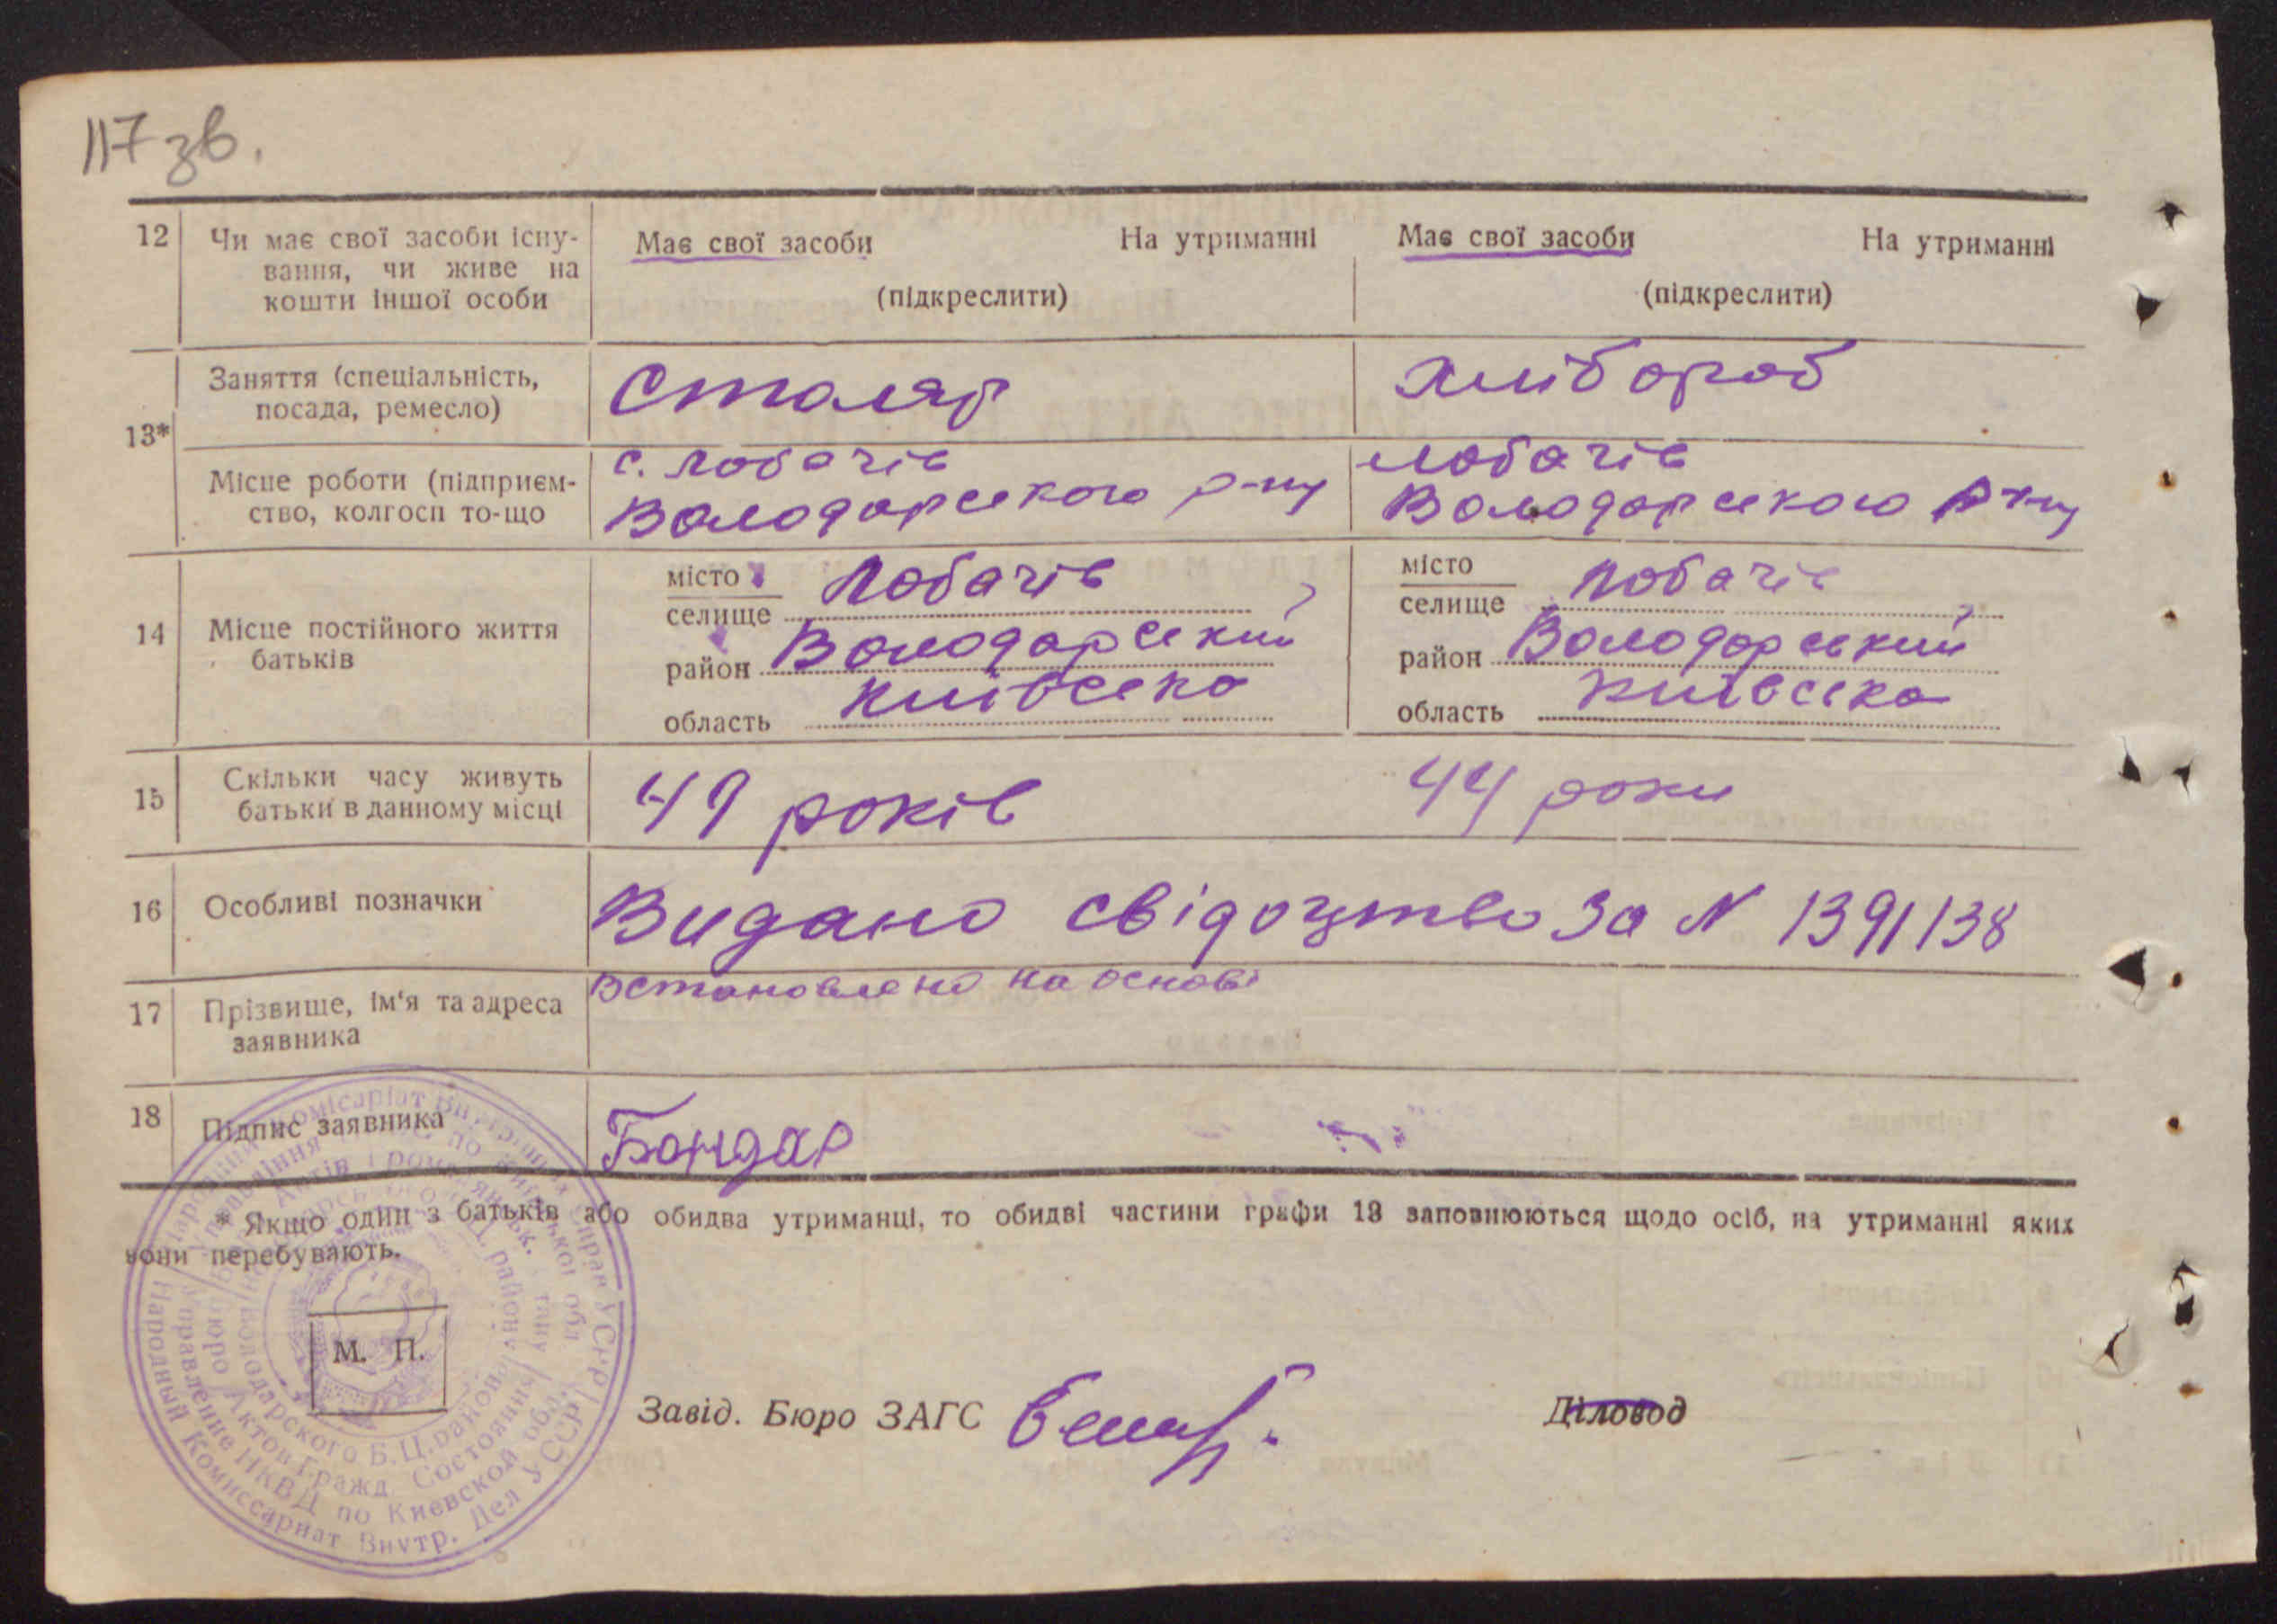 117 зв.
12 Чи має свої засоби існу- Має свої засоби На утриманні Має свої засоби На утриманні
вання, чи живе на
кошти іншої особи (підкреслити) (підкреслити)
Заняття (спеціальність, Столяр Хлібороб
посада, ремесло)
13*
Місце роботи (підприєм- с. Лобачів Лобачів
ство, колгосп то-що Володарського р-ну Володарського р-ну
14 Місце постійного життя
батьків
місто Лобачів місто Лобачів
селище селище
район Володарський район Володарський
область Київська область Київська
15 Скільки часу живуть 49 років 44 роки
батьки в данному місці
16 Особливі позначки Видано свідоцтво за N 1391138
17 Прізвище, ім'я та адреса Встановлено на основі
заявника
18 Підпис заявника Бондар
* Якщо один з батьків або обидва утриманці, то обидві частини графи 13 заповнюються щодо осіб, на утриманні яких
вони перебувають.
М. П.
Завід. Бюро ЗАГС Діловод
Народний Комісаріат Внутрішніх Справ УСРР
Народный Комиссариат Внутр. Дел УССР
Управление НКВД по Киевской обл.
Бюро Актов Гражд. Состояния
Володарского Б.Ц. района